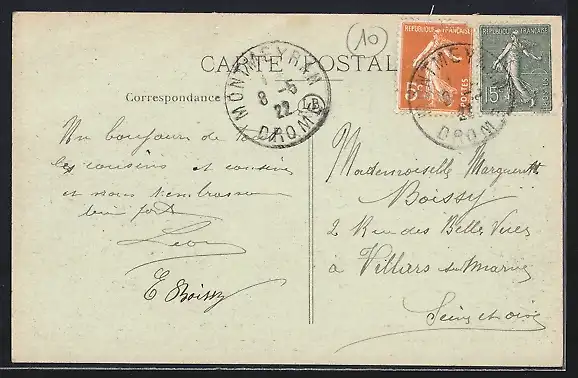 10
CARTE POSTALE
MONTMEYRAN
8 -6
22
DROME
LB
REPUBLIQUE FRANÇAISE
5c
POSTES
REPUBLIQUE FRANÇAISE
15c
DROME
Correspondance
Un bonjour de tous
les cousins et cousines
et nous t'embrassons
bien fort
Léon
E Boissy
Mademoiselle Marguerite
Boissy
2 Rue des Belles Vues
à Villiers sur Marne
Seine et oise